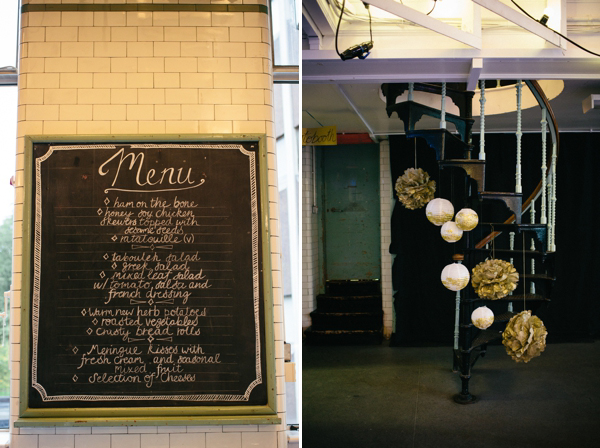 Menu
◊ ham on the bone
◊ honey soy chicken
skewers topped with
sesame seeds
◊ ratatouille (v)
◊ tabouleh salad
◊ greek salad
◊ mixed leaf salad
w/ tomato, salsa and
french dressing
◊ Warm new herb potatoes
◊ roasted vegetables
◊ Crusty bread rolls
◊ Meringue kisses with
fresh cream and seasonal
mixed fruit
◊ Selection of Cheeses